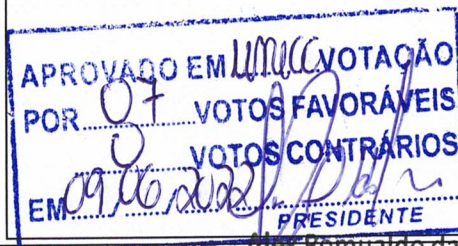 APROVADO EM Única VOTAÇÃO
POR 07 VOTOS FAVORÁVEIS
0 VOTOS CONTRÁRIOS
EM 09/06/2022
PRESIDENTE
Romualdo da